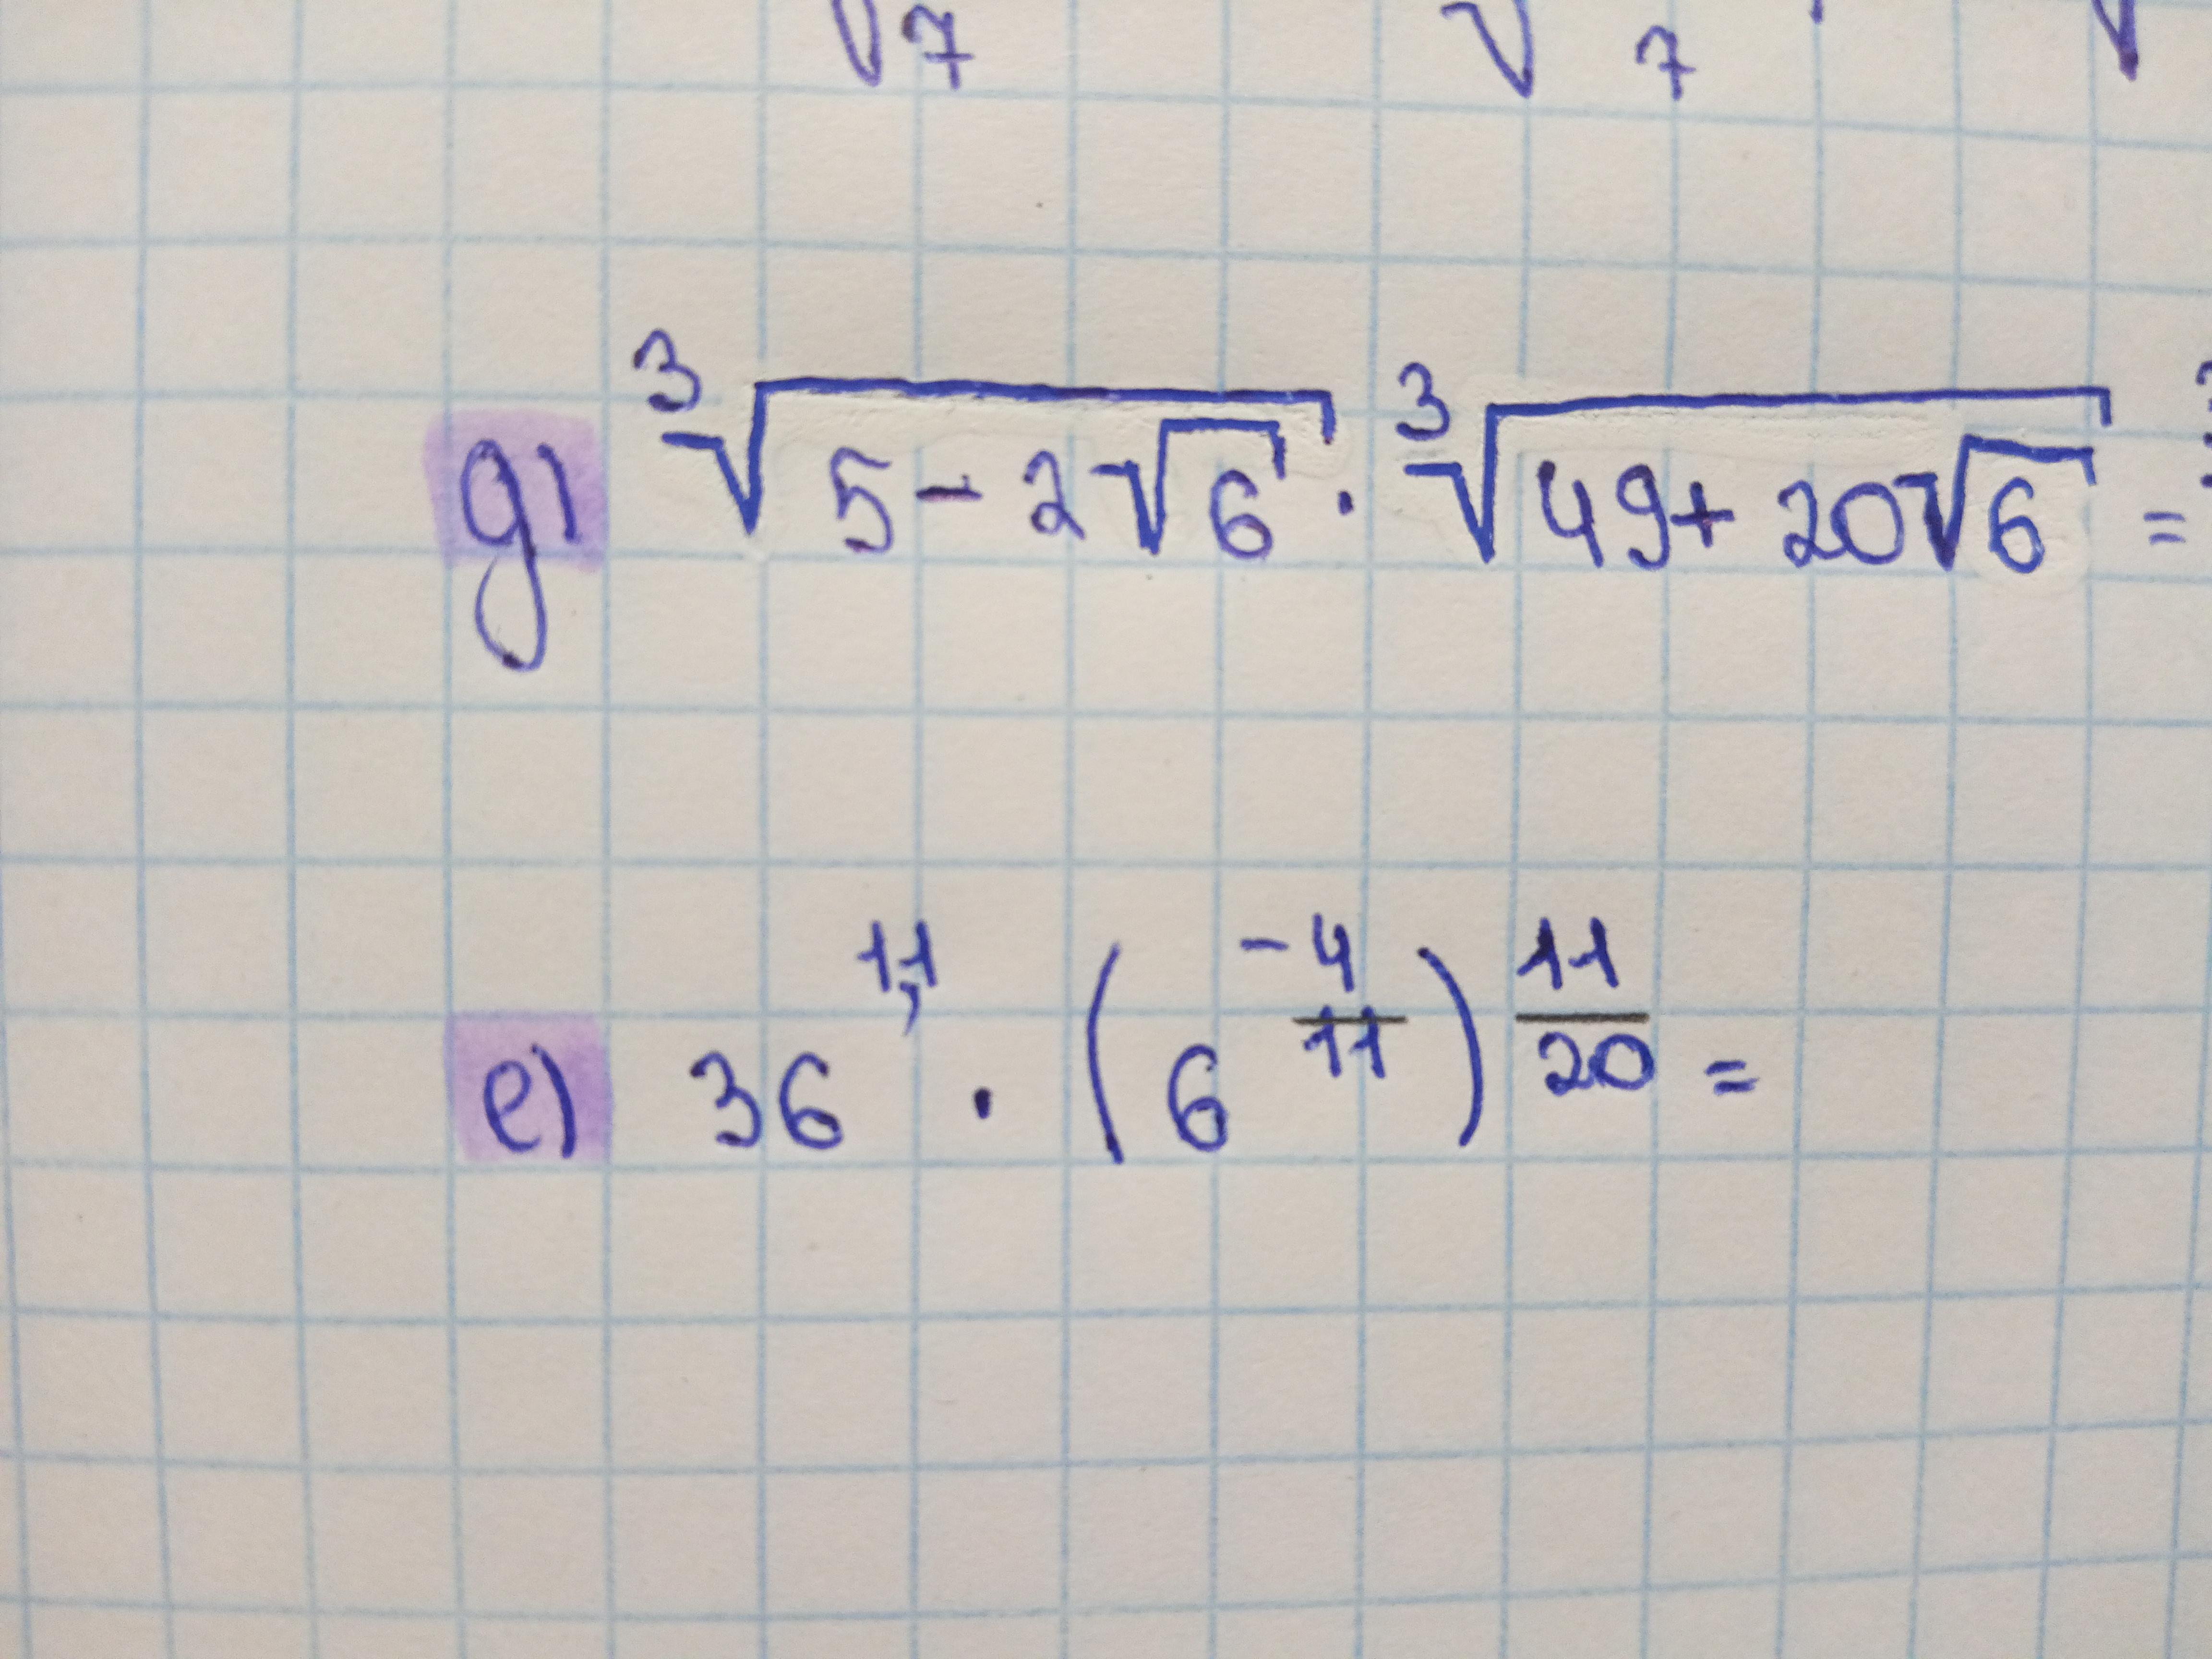 √7 √7
д) ³√(5-2√6) · ³√(49+20√6) =
е) 36^1,1 · (6^(-4/11))^(11/20) =